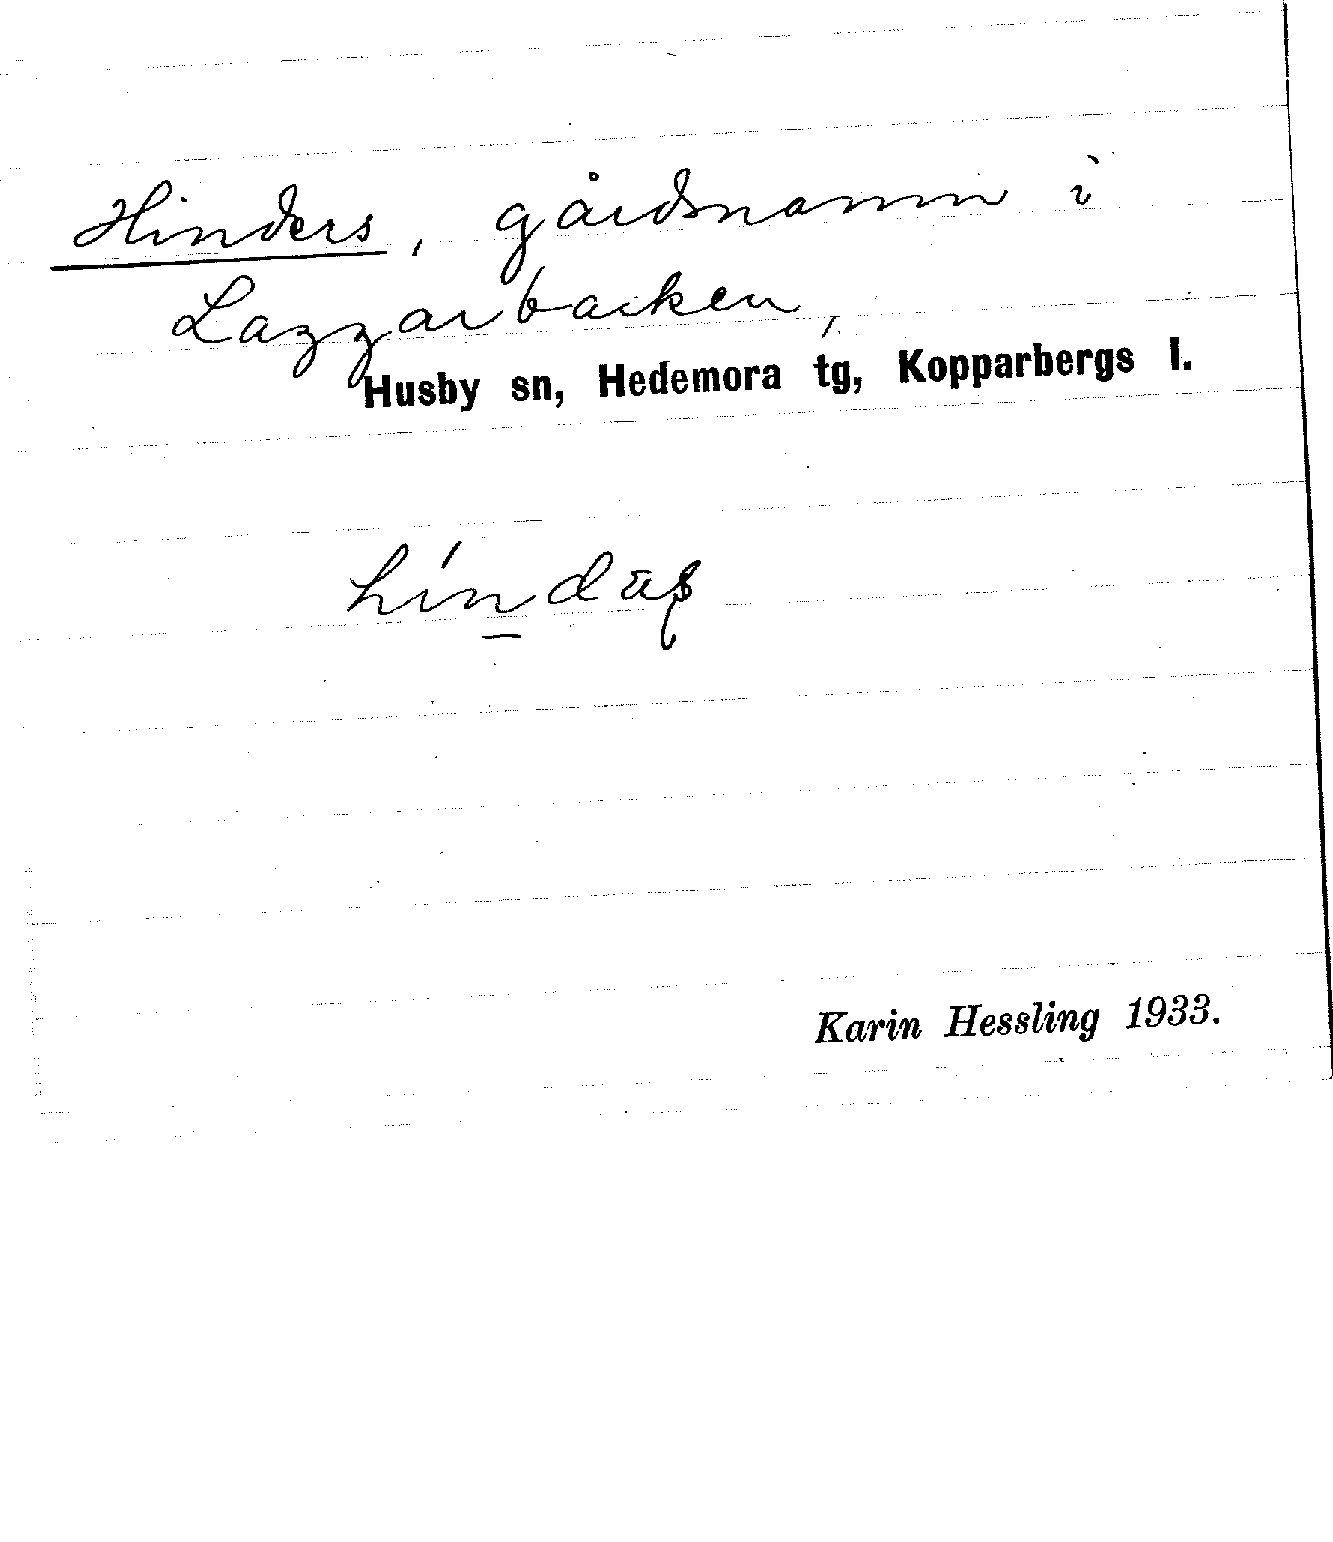 Hinders, gårdsnamn i
Laggarbacken,
Husby sn, Hedemora tg, Kopparbergs l.
Karin Hessling 1933.